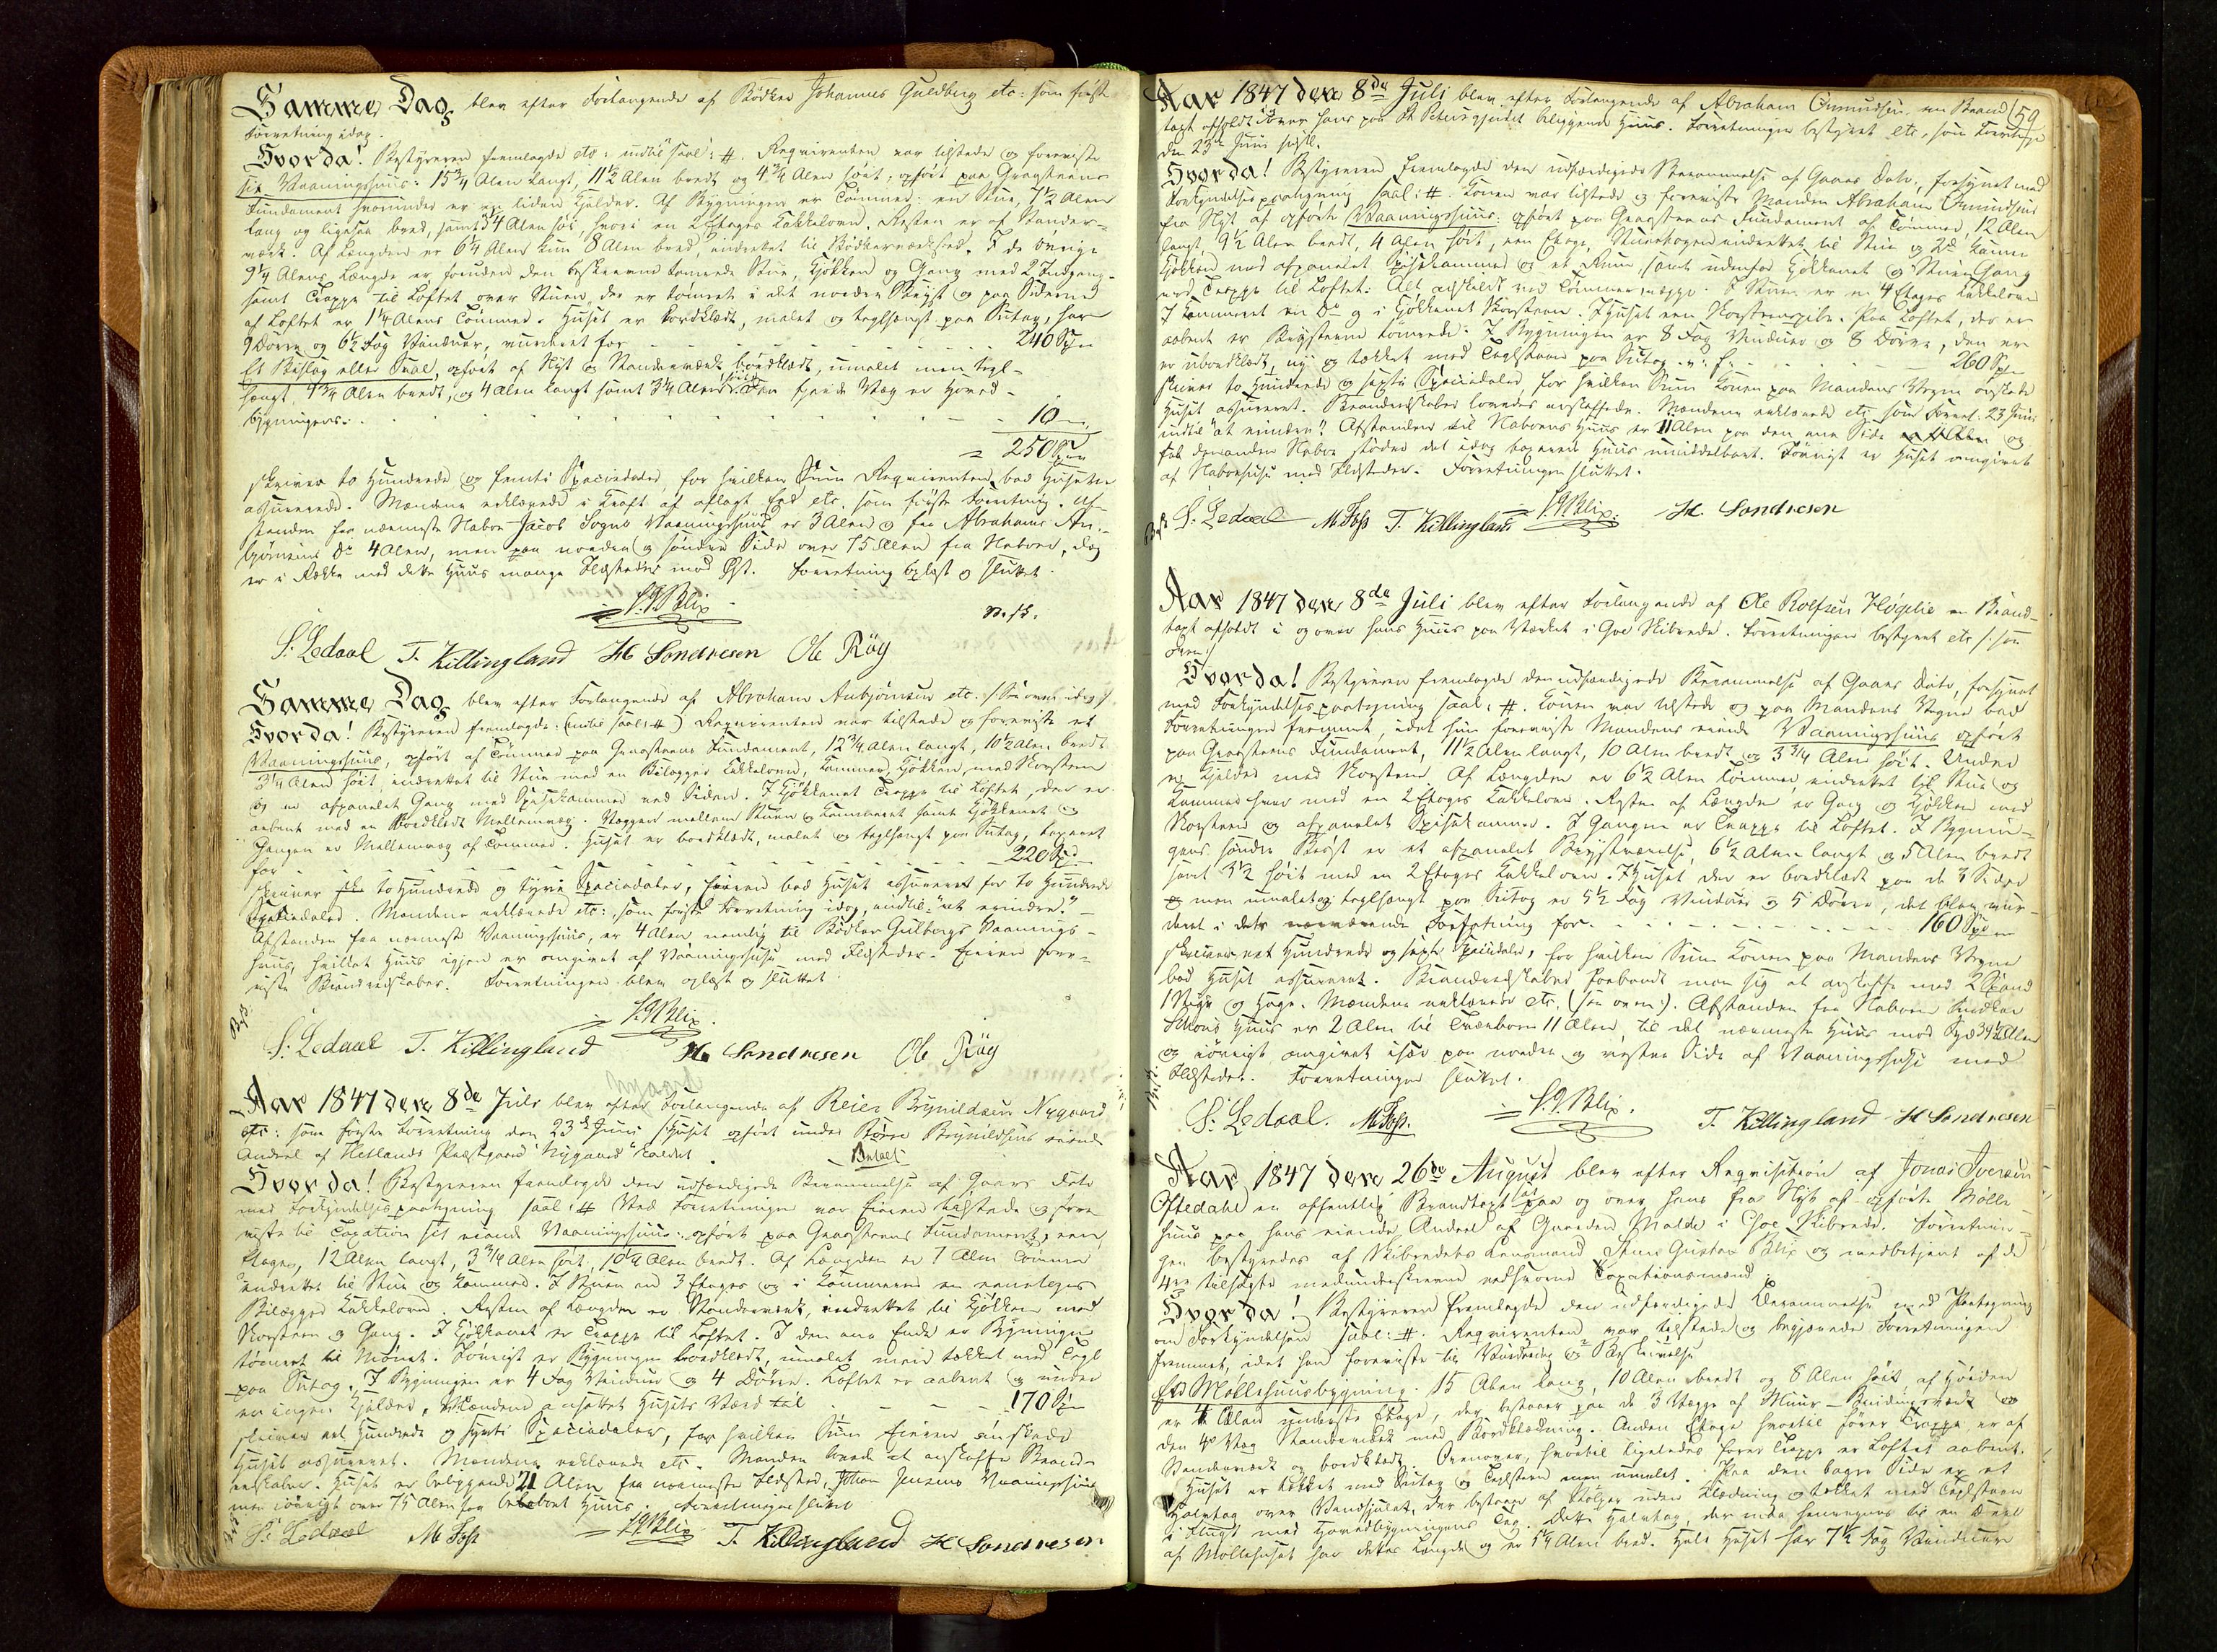 Samme Dag blev efter Forlangende af Bødker Johannes Guldberg etc: som første
Forretning idag.
Hvorda! Bestyreren fremlagde etc: indtil saal: #. Reqvirenten var tilstede og foreviste
sit Vaaningshuus: 15 3/4 Alen langt, 11 1/2 Alen bredt og 4 3/4 Alen høit; opført paa Graasteens
Fundament hvorunder er en liden Kjelder. Af Bygningen er Tømmer: en Stue, 7 1/2 Alen
lang og ligesaa bred, samt 3 1/4 Alen høi, hvori en 2 Etages Kakkelovn. Resten er af Stander-
værk. Af Længden er 6 1/4 Alen kun 8 Alen bred, indrettet til Bødkerværksted. I de øvrige
9 1/4 Alens Længde er foruden den beskrevne tømrede Stue, Kjøkken og Gang med 2 Indgang
samt Trappe til Loftet over Stuen der er tømret i det nordre Bryst og paa Siderne
af Loftet er 1 1/4 Alens Tømmer. Huset er bordklædt, malet og teglhængt paa Sutag, har
9 Dører og 6 1/2 Fag Vinduer, vurderet for 240 Spd
Et Bislag eller Sval, opført af Nyt og Standerværk bordklædt, umalet men tegl-
hængt, 1 3/4 Alen bredt, og 4 Alen langt samt 3 1/4 Alen høit. Den fjerde Væg er Hoved-
bygningens. 10 "
= 250 Spd
skriver to Hundrede og femti Speciedaler, for hvilken Sum Reqvirenten bad Husene
assurerede. Mændene erklærede i Kraft af aflagt Eed etc. som første Forretning. Af-
standen fra nærmeste Nabo Jacob Sogns Vaaningshuus er 3 Alen og fra Abrahams An-
bjørnsens do 4 Alen, men paa nordre og søndre Side over 75 Alen fra Naboer, dog
er i Række med dette Huus mange Ildsteder mod Øst. Forretning oplæst og sluttet.
S. G. Blix
S. Ledaal T. Killingland H Sondresen Ole Røy
Samme Dag blev efter Forlangende af Abraham Anbjørnsen etc. /: See oven idag :/
Hvorda! Bestyreren fremlagde: (indtil saal: #) Reqvirenten var tilstede og foreviste et
Vaaningshuus, opført af Tømmer paa Graasteens Fundament, 12 3/4 Alen langt, 10 1/2 Alen bredt
3 1/4 Alen høit, indrettet til Stue med en Bilægger Kakkelovn, Kammer, Kjøkken, med Skorsteen
og en afpanelet Gang med Spisekammer ved Siden. I Kjøkkenet Trappe til Loftet, der er
aabent med en Bordklædt Mellemvæg. Væggen mellem Stuen og Kammeret samt Kjøkkenet og
Gangen er Mellemvæg af Tømmer. Huset er bordklædt, malet og teglhængt paa Sutag, taxeret
for 220 Spd
skriver to Hundrede og tyve Speciedaler, Eieren bad Huset assureret for to Hundrede
Speciedaler. Mændene erklærede etc: som første Forretning idag, indtil: "at erindre."
Afstanden fra nærmeste Vaaningshuus, er 4 Alen nemlig til Bødker Gulbergs Vaanings-
huus, hvilket Huus igjen er omgivet af Vaaningshuse med Ildsteder. Eieren fore-
viste Brandredskaber. Forretningen blev oplæst og sluttet
S. G. Blix
S. Ledaal T. Killingland H Sondresen Ole Røy
Nygaard
Aar 1847 den 8de Juli blev efter Forlangende af Reier Brynildsen Nygaard
etc: som første Forretning den 23de Juni /: Huset opført under Brynildsens eiende
Andeel af Hetlands Præstgaard "Nygaard" kaldet.
Betalt
Hvorda! Bestyreren fremlagde den udfærdigede Berammelse af Gaars Dato
med Forkyndelsespaategning saal: # Ved Forretningen var Eieren tilstede og fore-
viste til Taxation sit eiende Vaaningshuus: opført paa Graasteens Fundament, een
Etage, 12 Alen langt, 3 3/4 Alen høit, 10 1/4 Alen bredt. Af Længden er 7 Alen Tømmer
indrettet til Stue og Kammer. I Stuen en 3 Etages og i Kammeret en eenetages
Bilægger Kakkelovn. Resten af Længden er Standerværk, indrettet til Kjøkken med
Skorsteen og Gang. I Kjøkkenet er Trappe til Loftet. I den ene Ende er Bygningen
tømret til Mønet. Forøvrigt er Bygningen bordklædt, umalet men tækket med Tegl
paa Sutag. I Bygningen er 4 Fag Vinduer og 4 Dører. Loftet er aabent og under
er ingen Kjelder, Mændene ansatte Husets Værd til 170 Spd
skriver eet Hundrede og sytti Speciedaler, for hvilken Sum Eieren ønskede
Huset assureret. Mændene erklærede etc. Manden lovede at anskaffe Brand-
redskaber. Huset er beliggende 21 Alen fra nærmeste Ildsted, Johan Jensens Vaaningshuus
men iøvrigt over 75 Alen fra bebobart Huus. Forretningen sluttet
S. Ledaal M Foss S. G. Blix T. Killingland H Sondresen
59
Aar 1847 den 8de Juli blev efter Forlangende af Abraham Omundsen en Brand-
taxt afholdt over hans paa St. Petersgjerdet beliggende Huus. Forretningen bestyret etc, som Forretning
den 23de Juni sidstl.
Hvorda! Bestyreren fremlagde den udfærdigede Berammelse af Gaars Dato, forsynet med
Forkyndelsespaategning saal: #. Konen var tilstede og foreviste Manden Abraham Omundsens
fra Nyt af opførte Vaaningshuus: opført paa Graasteens Fundament af Tømmer, 12 Alen
langt, 9 1/2 Alen bredt, 4 Alen høit, een Etage, Stueetagen indrettet til Stue og Kammer
Kjøkken med afpanelet Spisekammer og et Rum, samt udenfor Kjøkkenet og Stuen Gang
med Trappe til Loftet. Alt adskildt ved Tømmervægge. I Stuen er en 4 Etages Kakkelovn
I Kammeret en do og i Kjøkkenet Skorsteen. I Huset een Skorsteenspibe. Paa Loftet, der er
aabent er Brysterne tømrede. I Bygningen er 8 Fag Vinduer og 8 Dører, den er
er ubordklædt, ny og tækket med Teglsteen paa Sutag 260 Spd
skriver to Hundrede og sexti Speciedaler, for hvilken Sum Konen paa Mandens Vegne ønskede
Huset assureret. Brandredskaber lovedes anskaffede. Mændene erklærede etc som Forret. 23 Juni
indtil "at erindre." Afstanden til Naboens Huus er 11 Alen paa den ene Side og
saa den anden Nabo støder det idag taxerede Huus umiddelbart. Forøvrigt er Huset omgivet
af Nabohuse med Ildsteder. Forretningen sluttet.
S. Ledaal M Foss T. Killingland S. G. Blix H. Sondresen
Aar 1847 den 8de Juli blev efter Forlangende af Ole Rolfsen Høgelie en Brand-
taxt afholdt i og over hans Huus paa Værket i Goe Skibrede. Forretningen bestyret etc /: see
oven :/
Hvorda! Bestyreren fremlagde den udfærdigede Berammelse af Gaars Dato, forsynet
med Forkyndelsespaategning saal: #. Konen var tilstede og paa Mandens Vegne bad
Forretningen fremmet, idet hun foreviste Mandens eiende Vaaningshuus opført
paa Graasteens Fundament, 11 1/2 Alen langt, 10 Alen bredt og 3 3/4 Alen høit. Under
er Kjelder med Skorsteen. Af Længden er 6 1/2 Alen Tømmer, indrettet til Stue og
Kammer hver med en 2 Etages Kakkelovn. Resten af Længden er Gang og Kjøkken med
Skorsteen og afpanelet Spisekammer. I Gangen er Trappe til Loftet. I Bygnin-
gens søndre Bryst er et afpanelet Brystværelse, 6 1/2 Alen langt og 5 Alen bredt
samt 3 1/2 høit med en 2 Etages Kakkelovn. I Huset der er bordklædt paa de 3 Sider
men umalet og teglhængt paa Sutag er 5 1/2 Fag Vinduer og 5 Dører, det blev vur-
deret i dets nærværende Forfatning for 160 Spd
skriver eet Hundrede og sexti Speciedaler, for hvilken Sum Konen paa Mandens Vegne
bad Huset assureret. Brandredskaber forbandt man sig at anskaffe med 2 Spand
1 Stige og Hage. Mændene erklærede etc. (see oven :). Afstanden fra Naboen Snedker
Huus er 2 Alen til Tranboen 11 Alen, til det nærmeste Huus mod Syd 34 1/2 Alen
og iøvrigt omgivet især paa nordre og vestre Side af Vaaningshuse med
Ildsteder. Forretningen sluttet.
S. Ledaal. M Foss. S. G. Blix. T. Killingland H Sondresen
Aar 1847 den 26de August blev efter Reqvisition af Jonas Iversen
Oftedahl en offentlig Brandtaxt paa og over hans fra Nyt af opførte Mølle-
huus paa hans eiende Andeel af Gaarden Malde i Goe Skibrede. Forretnin-
gen bestyredes af Skibredets Lensmand Sems Gustav Blix og medbetjent af de
4re tilsagte medunderskrevne edsvorne Taxationsmænd.
Hvorda! Bestyreren fremlagde den udfærdigede Berammelse med Paategning
om Forkyndelsen saal: #. Reqvirenten var tilstede og begjærede Forretningen
fremmet, idet han foreviste til Vurdering og Beskrivelse
Et Møllehuusbygning. 15 Alen lang, 10 Alen bredt og 8 Alen høit af Høiden
er 4 Alen underste Etage, der bestaaer paa de 3 Vægge af Muur-Bindingsværk og
den 4de Væg Standerværk med Bordklædning. Anden Etage hvortil fører Trappe, er af
Standerværk og bordklædt. Ovenover, hvortil ligeledes fører Trappe er Loftet aabent.
Huset er tækket med Sutag og Teglsteen men umalet. Paa den bagre Side er et
Halvtag over Vandhjulet, der bestaaer af Stolper uden Klædning og tækket med Teglsteen
i Flugt med Hovedbygningens Tag. Dette Halvtag, der maa henregnes til en Deel
af Møllehuset har dettes Længde og er 5 1/4 Alen bred. Hele Huset har 7 1/2 Fag Vinduer